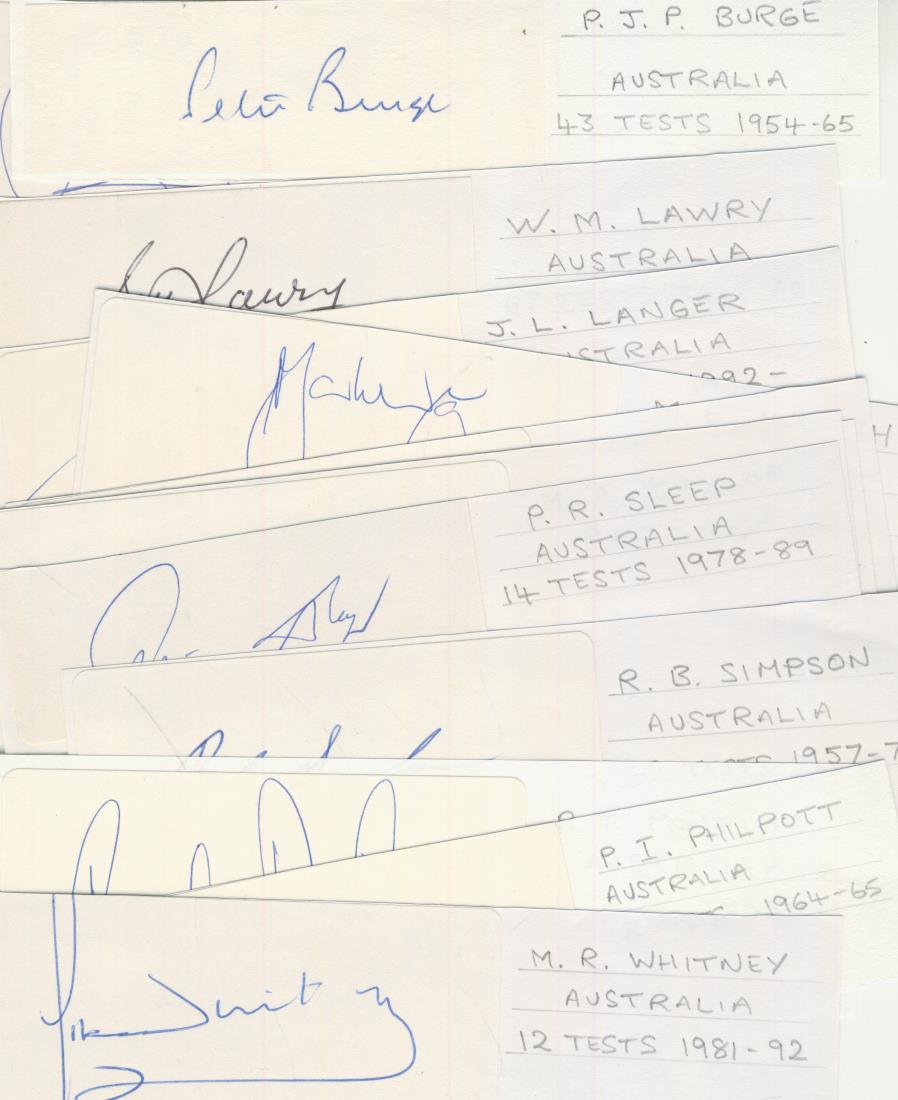 Peter Burge
P. J. P. BURGE
AUSTRALIA
43 TESTS 1954-65
W. M. LAWRY
AUSTRALIA
Lawry
J. L. LANGER
AUSTRALIA
1992-
H
P. R. SLEEP
AUSTRALIA
14 TESTS 1978-89
R. B. SIMPSON
AUSTRALIA
TESTS 1957-7
P. I. PHILPOTT
AUSTRALIA
1964-65
M. R. WHITNEY
AUSTRALIA
12 TESTS 1981-92
Mike Whitney